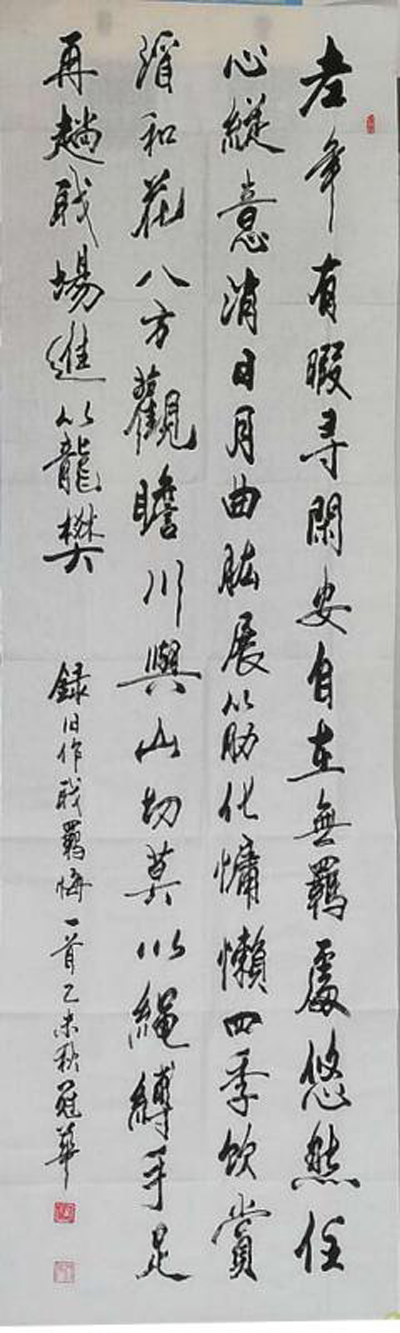 老年有暇寻閑安自在無羈處悠然任
心縱意消日月曲肱展筋化慵懶四季飲賞
湑和花八方觀瞻川與山切莫以繩縛手足
再趟職場進籠樊
録旧作職羈悔一首乙未秋冠華